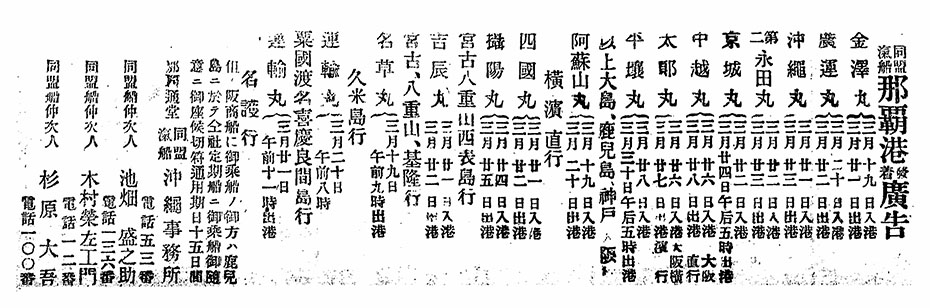 同盟汽船 那覇港發着廣告
金澤丸 三月十九日入港
三月廿一日出港
廣運丸 三月二十日入港
三月廿一日出港
沖繩丸 三月廿一日入港
三月廿二日出港
第二永田丸 三月廿一日入港
三月廿三日出港
京城丸 三月廿四日午后五時出港
中越丸 三月廿六日 大阪直行
太耶丸 三月廿六日大阪橫濱行
平壤丸 三月三十日午后五時出港
以上大島、鹿兒島、神戸、大阪行
阿蘇山丸 三月十九日入港
三月二十日出港
橫濱直行
四國丸 三月廿一日入港
三月廿二日出港
攝陽丸 三月廿二日入港
三月廿五日出港
宮古八重山西表島行
吉辰丸 三月廿一日入港
三月廿二日出港
宮古、八重山、基隆行
名草丸 三月十九日
午前九時出港
久米島行
運輸丸 三月二十日
午前八時
粟國渡名喜慶良間島行
運輸丸 三月廿一日
午前十一時出港
名護行
但大阪商船に御乘船ノ御方ハ鹿兒
島ニ於テ仝社定期船ニ御乘船御隨
意ニ御座候切符通用期日十五日間
那覇通堂 同盟汽船 沖繩事務所
電話五三番
同盟船仲次人 池畑盛之助
電話一三六番
同盟船仲次人 木村榮左工門
電話一一二番
同盟船仲次人 杉原大吾
電話一〇〇番